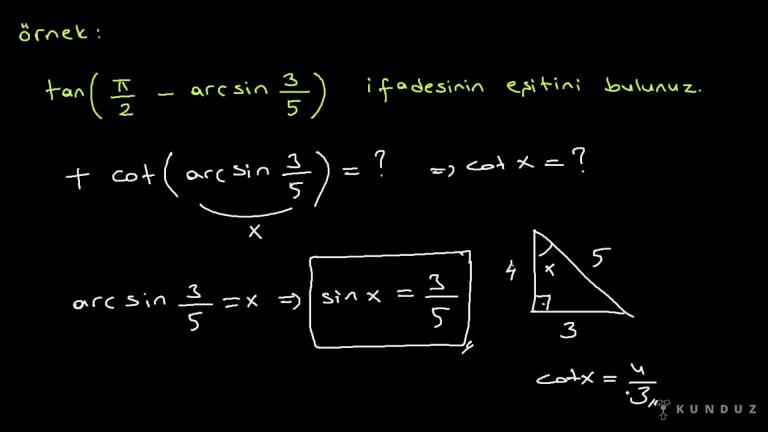 örnek:
tan(π/2 − arcsin 3/5) ifadesinin eşitini bulunuz.
+ cot(arcsin 3/5) = ? ⇒ cot x = ?
x
arcsin 3/5 = x ⇒ sin x = 3/5
4 x 5
3
cotx = 4/3
KUNDUZ